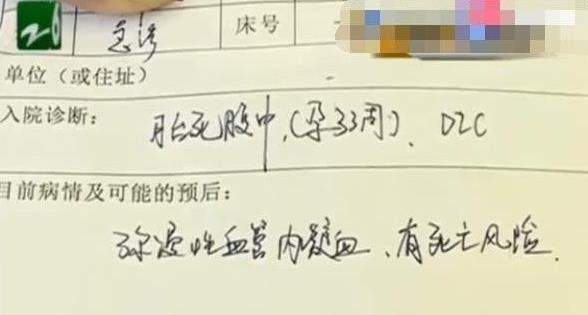 急诊 床号
单位（或住址）
入院诊断：
胎死腹中，（孕33周）、DIC
目前病情及可能的预后：
弥漫性血管内凝血、有死亡风险.